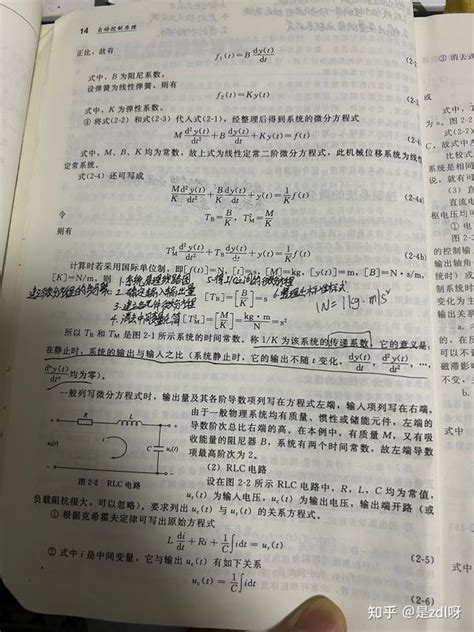 14 自动控制原理
正比，故有
f₁(t)=B dy(t)/dt (2-2
式中，B为阻尼系数。
设弹簧为线性弹簧，则有
f₂(t)=Ky(t) (2-
式中，K为弹性系数。
④ 将式(2-2) 和式(2-3) 代入式(2-1)，经整理后得到系统的微分方程式
M d²y(t)/dt² + B dy(t)/dt + Ky(t)=f(t) (2-
式中，M、B、K均为常数，故上式为线性定常二阶微分方程式，此机械位移系统为线性
定常系统。
式(2-4) 还可写成
M/K d²y(t)/dt² + B/K dy(t)/dt + y(t)=1/K f(t) (2-4a)
令
T_B=B/K, T²_M=M/K
则有
T²_M d²y(t)/dt² + T_B dy(t)/dt + y(t)=1/K f(t) (2-4b)
计算时若采用国际单位制，即[f(t)]=N，[t]=s，[M]=kg，[y(t)]=m，[B]=N·s/m，
[K]=N/m，则
1.系统原理线路图
建立微分方程的步骤
2.确定输入输出量
3.建立各元件微分方程
4.消去中间变量
[T_B]=[B/K]=s
1N=1kg·m/s²
[T²_M]=[M/K]=kg·m/N=s²
所以 T_B 和 T_M 是图 2-1 所示系统的时间常数。称 1/K 为该系统的传递系数，它的意义是：
在静止时，系统的输出与输入之比(系统静止时，它的输出不随 t 变化，dy(t)/dt, d²y(t)/dt², …,
dⁿy(t)/dtⁿ 均为零)。
一般列写微分方程式时，输出量及其各阶导数项列写在方程式左端，输入项列写在右端。
由于一般物理系统均有质量、惯性或储能元件，左端的
导数阶次总比右端的高。在本例中，有质量M，又有吸
收能量的阻尼器B，系统有两个时间常数，故左端导数
项最高阶次为2。
R L
u_r(t) i C u_c(t)
图 2-2 RLC电路
(2) RLC电路
设在图 2-2 所示 RLC 电路中，R、L、C 均为常值，
u_r(t) 为输入电压，u_c(t) 为输出电压，输出端开路 (或
负载阻抗很大，可以忽略)。要求列出 u_c(t) 与 u_r(t) 的关系方程式。
① 根据克希霍夫定律可写出原始方程式
L di/dt + Ri + 1/C ∫idt = u_r(t) (2-5)
② 式中 i 是中间变量，它与输出 u_c(t) 有如下关系
u_c(t)=1/C ∫idt (2-6)
③ 消去
或
式中
直流电
的控制输
输出轴角
系统时间
不变。
a.
b.
知乎 @是zdl呀